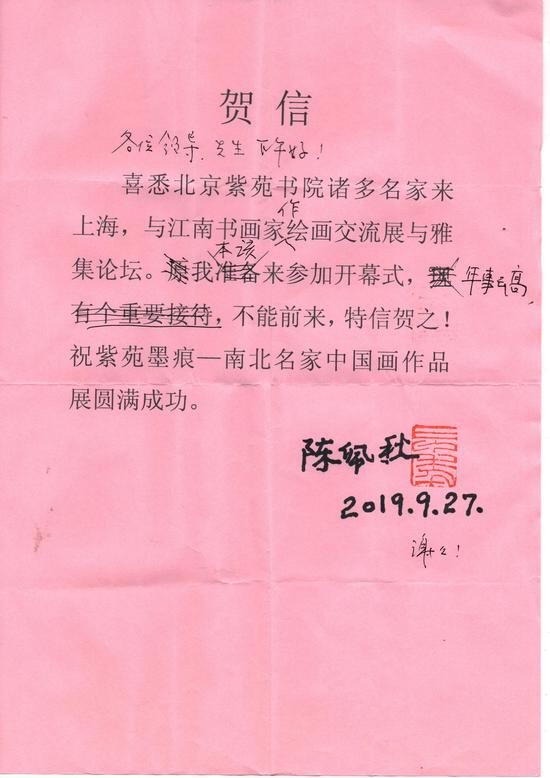 贺信
各位领导、先生下午好！
喜悉北京紫苑书院诸多名家来
作
上海，与江南书画家绘画交流展与雅
本该
集论坛。原我准备来参加开幕式，因 年事已高
有个重要接待，不能前来，特信贺之！
祝紫苑墨痕—南北名家中国画作品
展圆满成功。
陈佩秋
2019.9.27.
谢谢！